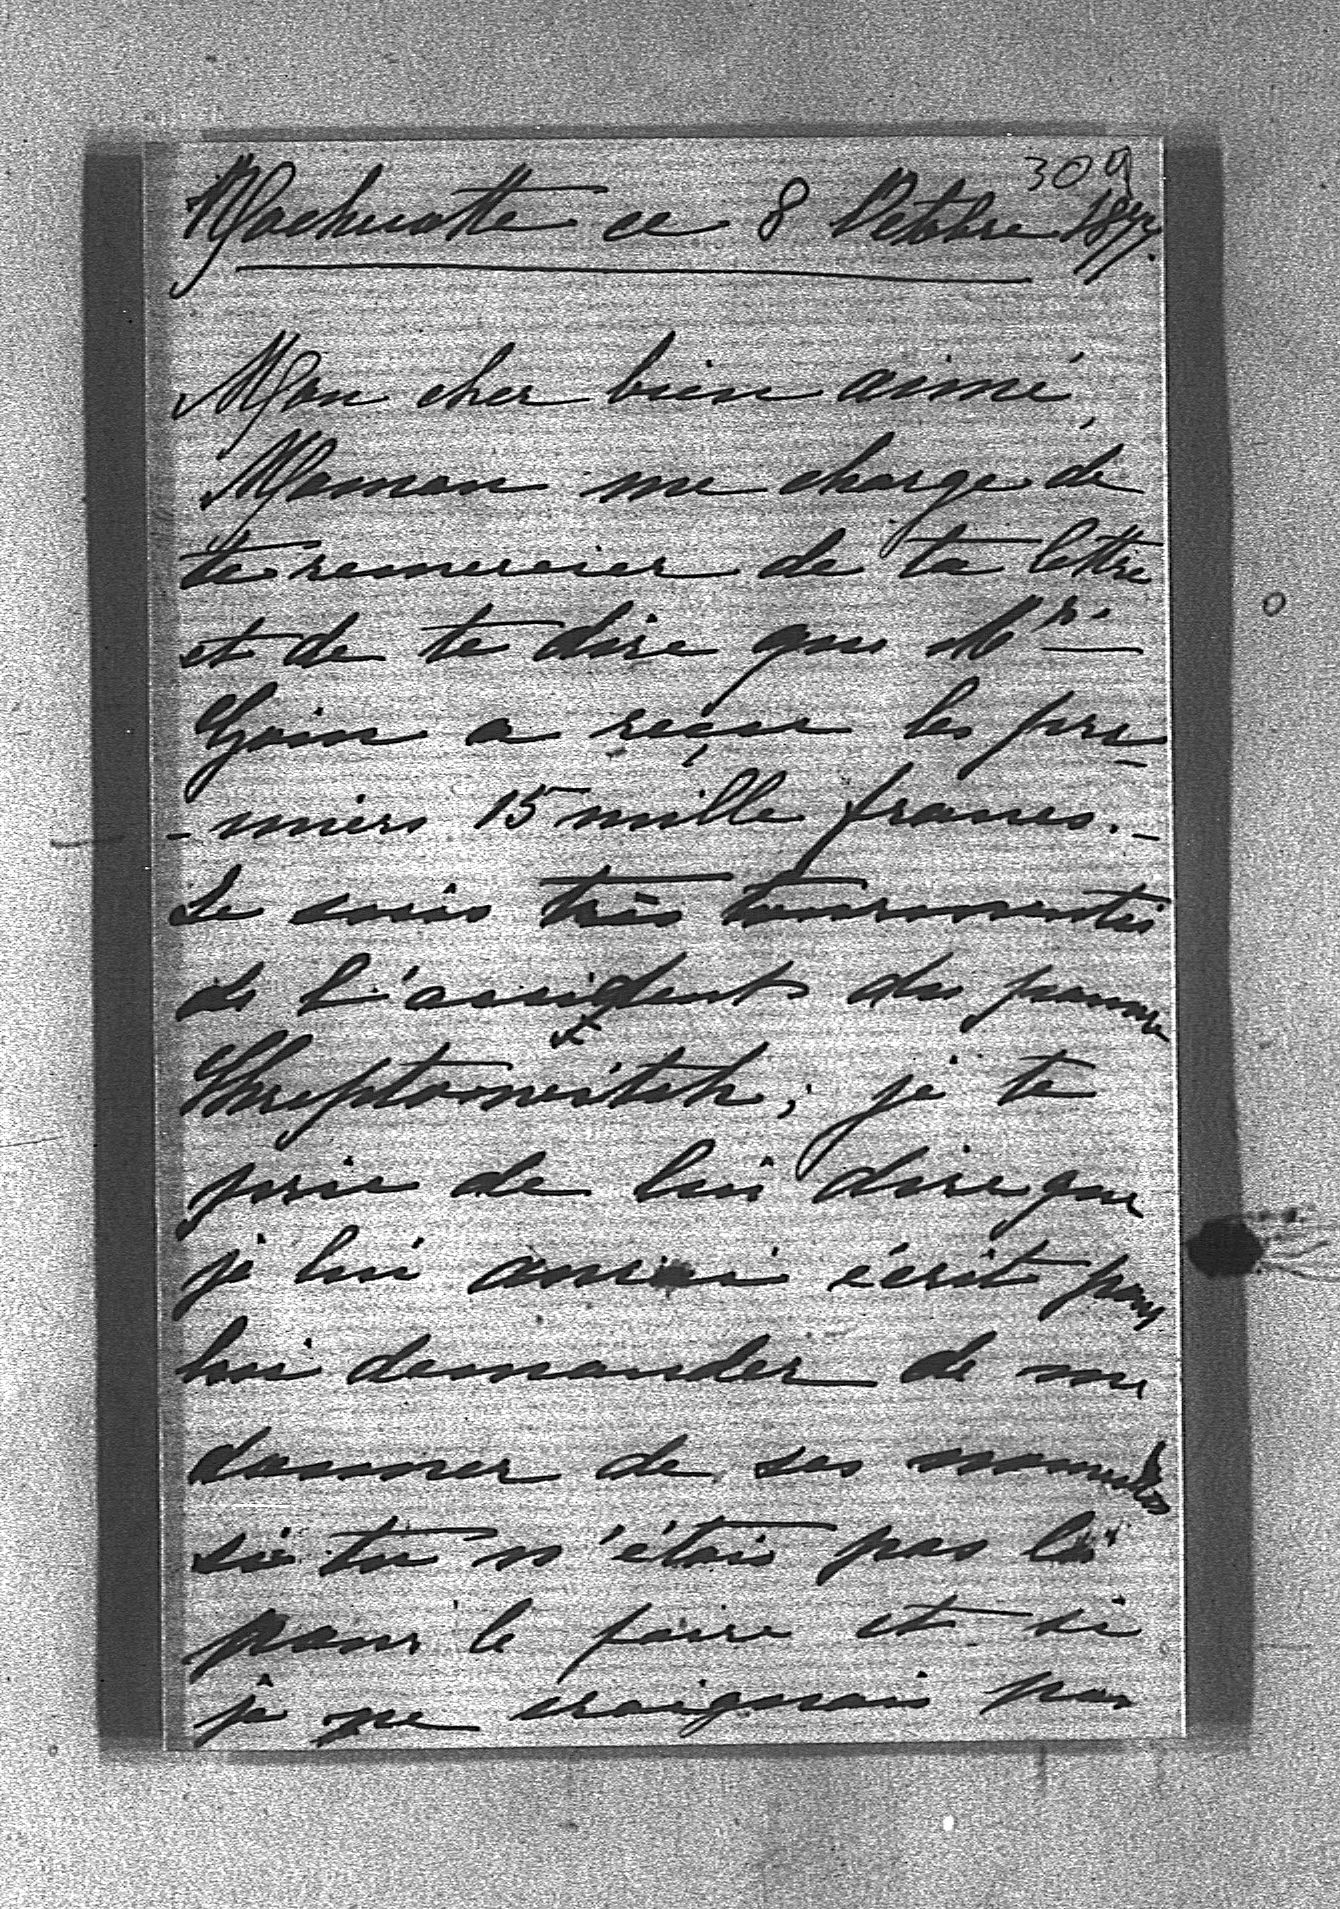 309
Machucotte ce 8 Octobre 1877.
Mon cher bien aimé,
Maman me charge de
te remercier de ta lettre
et de te dire que Mr.
Goin a reçu les pre-
-miers 15 mille francs. -
Je suis très tourmentée
de l'accident du pauvre
je te
prie de lui dire que
je lui aurai écrit pour
lui demander de me
donner de ses nouvelles
si tu n'étais pas là
pour le faire et si
je ne craignais pas